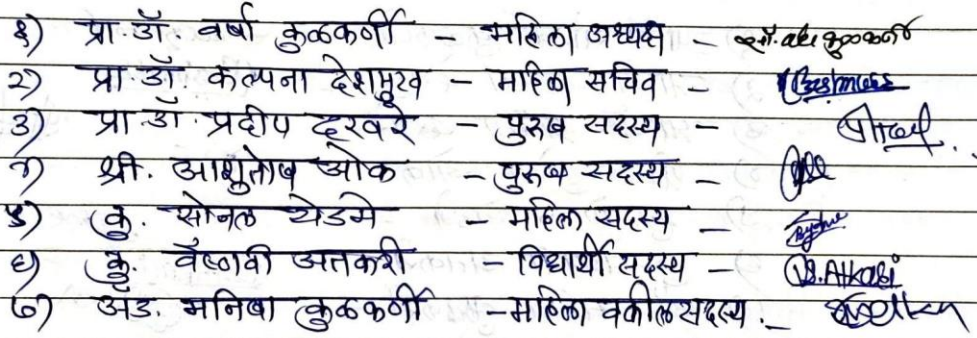 १) प्रा. डॉ. वर्षा कुळकर्णी - महिला अध्यक्ष - सौ. वर्षा कुळकर्णी
२) प्रा. डॉ. कल्पना देशमुख - महिला सचिव -
३) प्रा. डॉ. प्रदीप दरवरे - पुरुष सदस्य -
४) श्री. आशुतोष ओक - पुरुष सदस्य -
५) कु. सोनल येडमे - महिला सदस्य -
६) कु. वैष्णवी अतकरी - विद्यार्थी सदस्य - V.B.Atkari
७) अॅड. मनिषा कुळकर्णी - महिला वकील सदस्य. -